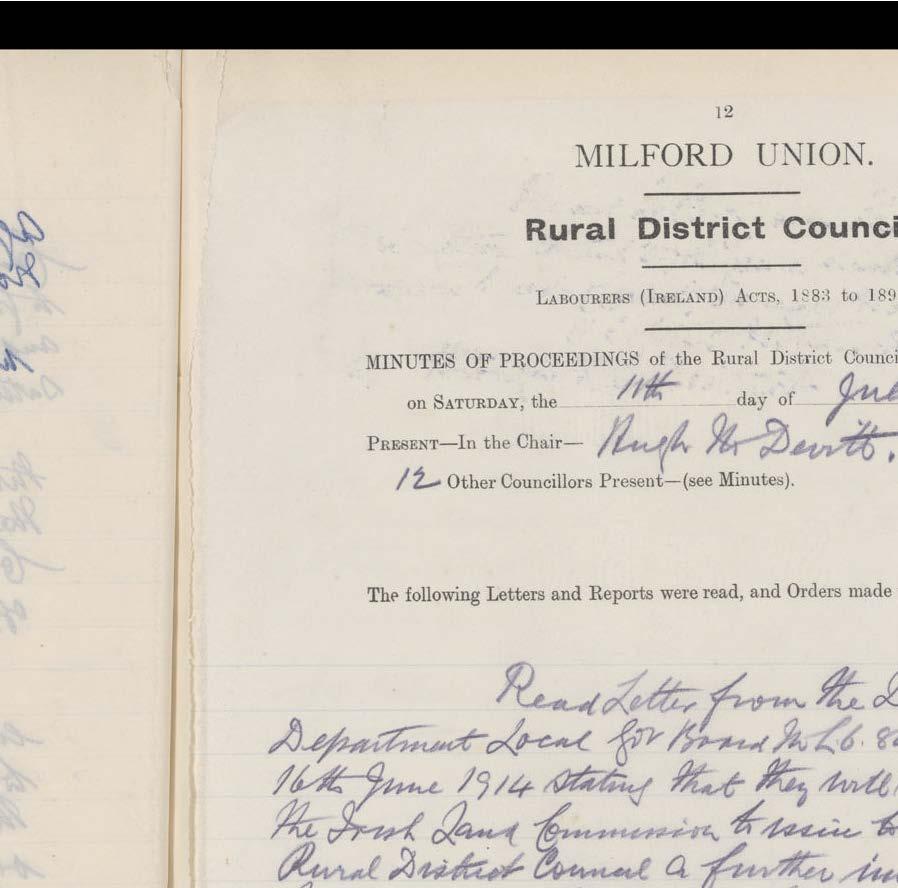 12
MILFORD UNION.
Rural District Counci
LABOURERS (IRELAND) ACTS, 1883 to 189
MINUTES OF PROCEEDINGS of the Rural District Counci
on SATURDAY, the 11th day of
PRESENT—In the Chair— Hugh Mc Devitt.
12 Other Councillors Present—(see Minutes).
The following Letters and Reports were read, and Orders made
Read Letter from the L
Department Local Gov Board
16th June 1914 stating that they will
the Irish Land Commission to issue to
Rural District Council a further in